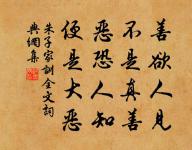 善欲人見
不是真善
恶恐人知
便是大恶
朱子家訓全文詞
典網集